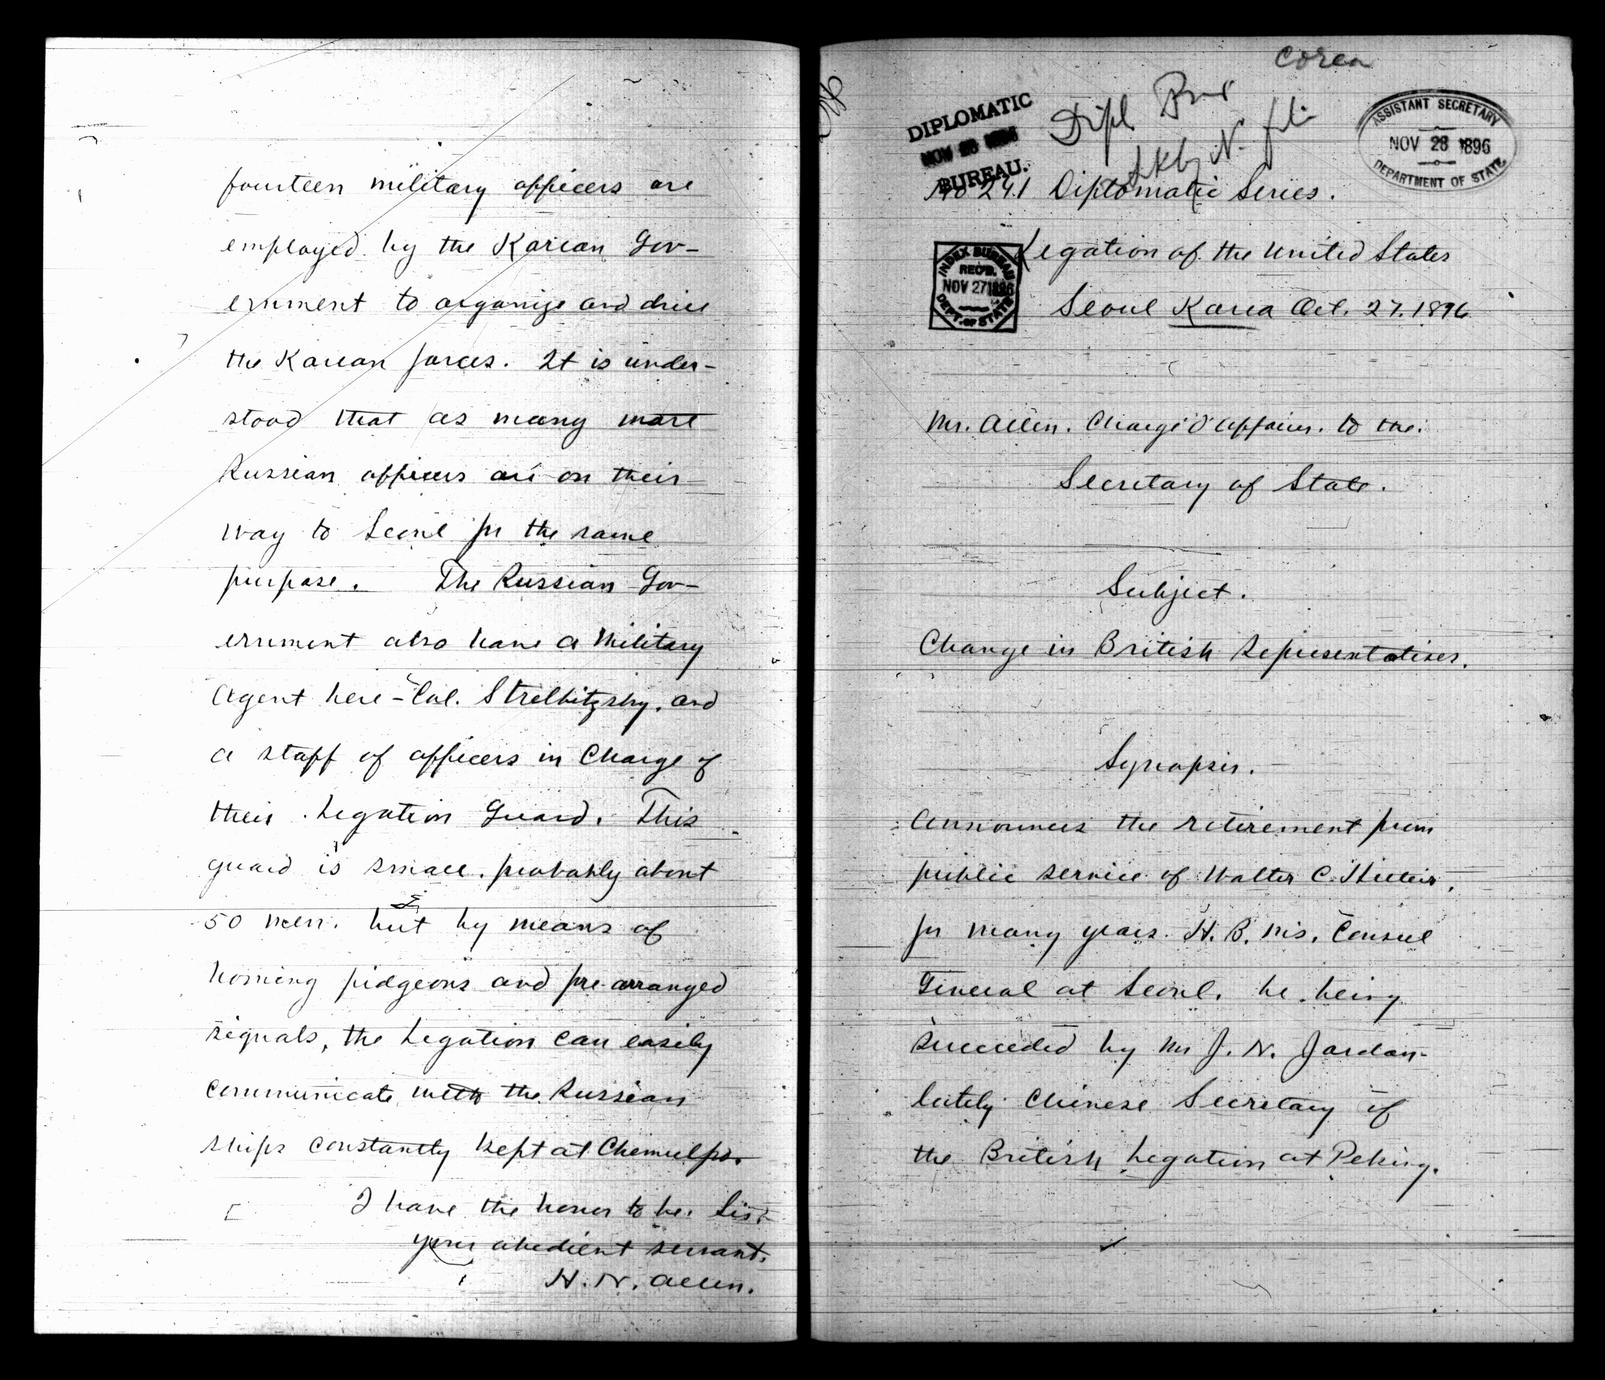 fourteen military officers are
employed by the Korean Gov-
ernment to organize and drill
the Korean forces. It is under-
stood that as many more
Russian officers are on their
way to Seoul for the same
purpose. The Russian Gov-
ernment also have a Military
Agent here - Col. Strelbitzsky, and
a staff of officers in charge of
their Legation Guard. This
guard is small, probably about
50 men, but by means of
homing pidgeons and pre-arranged
signals, the Legation can easily
communicate with the Russian
ships constantly kept at Chemulpo.
I have the honor to be, Sir,
your obedient servant,
H. N. Allen.
Corea
DIPLOMATIC
NOV 28 1896
BUREAU.
Dipl Bur
ASSISTANT SECRETARY
NOV 28 1896
DEPARTMENT OF STATE
No 241 Diplomatic Series.
INDEX BUREAU
REC'D.
NOV 27 1896
DEPT. OF STATE
Legation of the United States
Seoul Korea Oct. 27. 1896
Mr. Allen. Chargé d'affaires. to the.
Secretary of State.
Subject.
Change in British Representatives.
Synopsis.
Announces the retirement from
public service of Walter C. Hillier,
for many years. H. B. Ms. Consul
General at Seoul. he being
succeeded by Mr J. N. Jordan-
lately Chinese Secretary of
the British Legation at Peking.